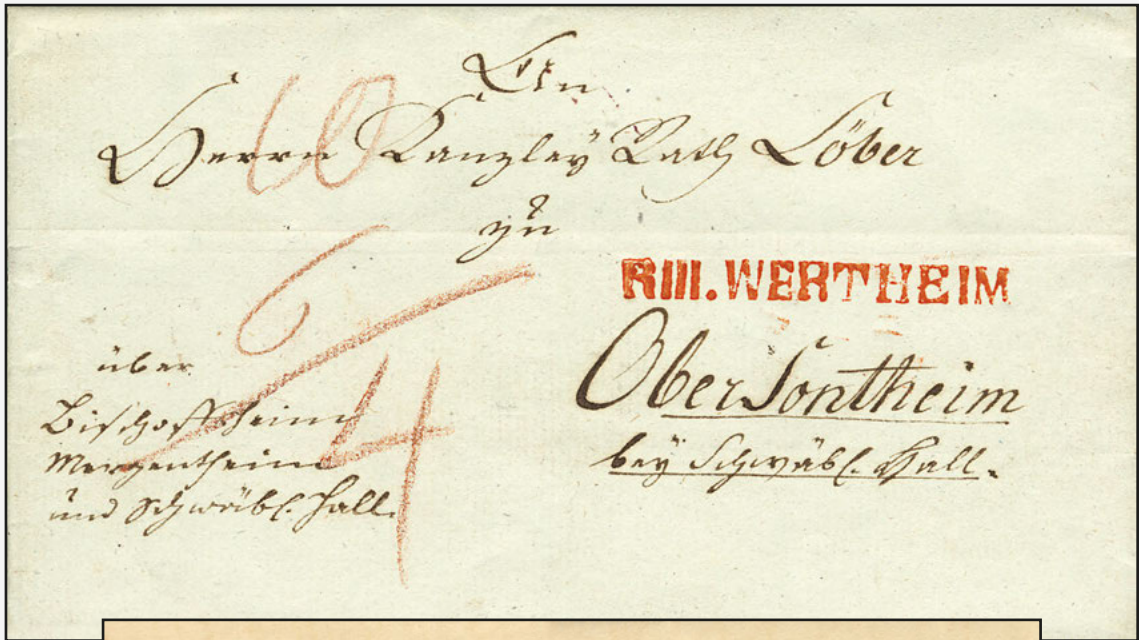 An
Herrn Kanzley Rath Löber
zu
10
6
4
R III. WERTHEIM
Ober Sontheim
bey Schwäb. Hall.
über
Bischoffsheim
Mergentheim
und Schwäb. Hall.